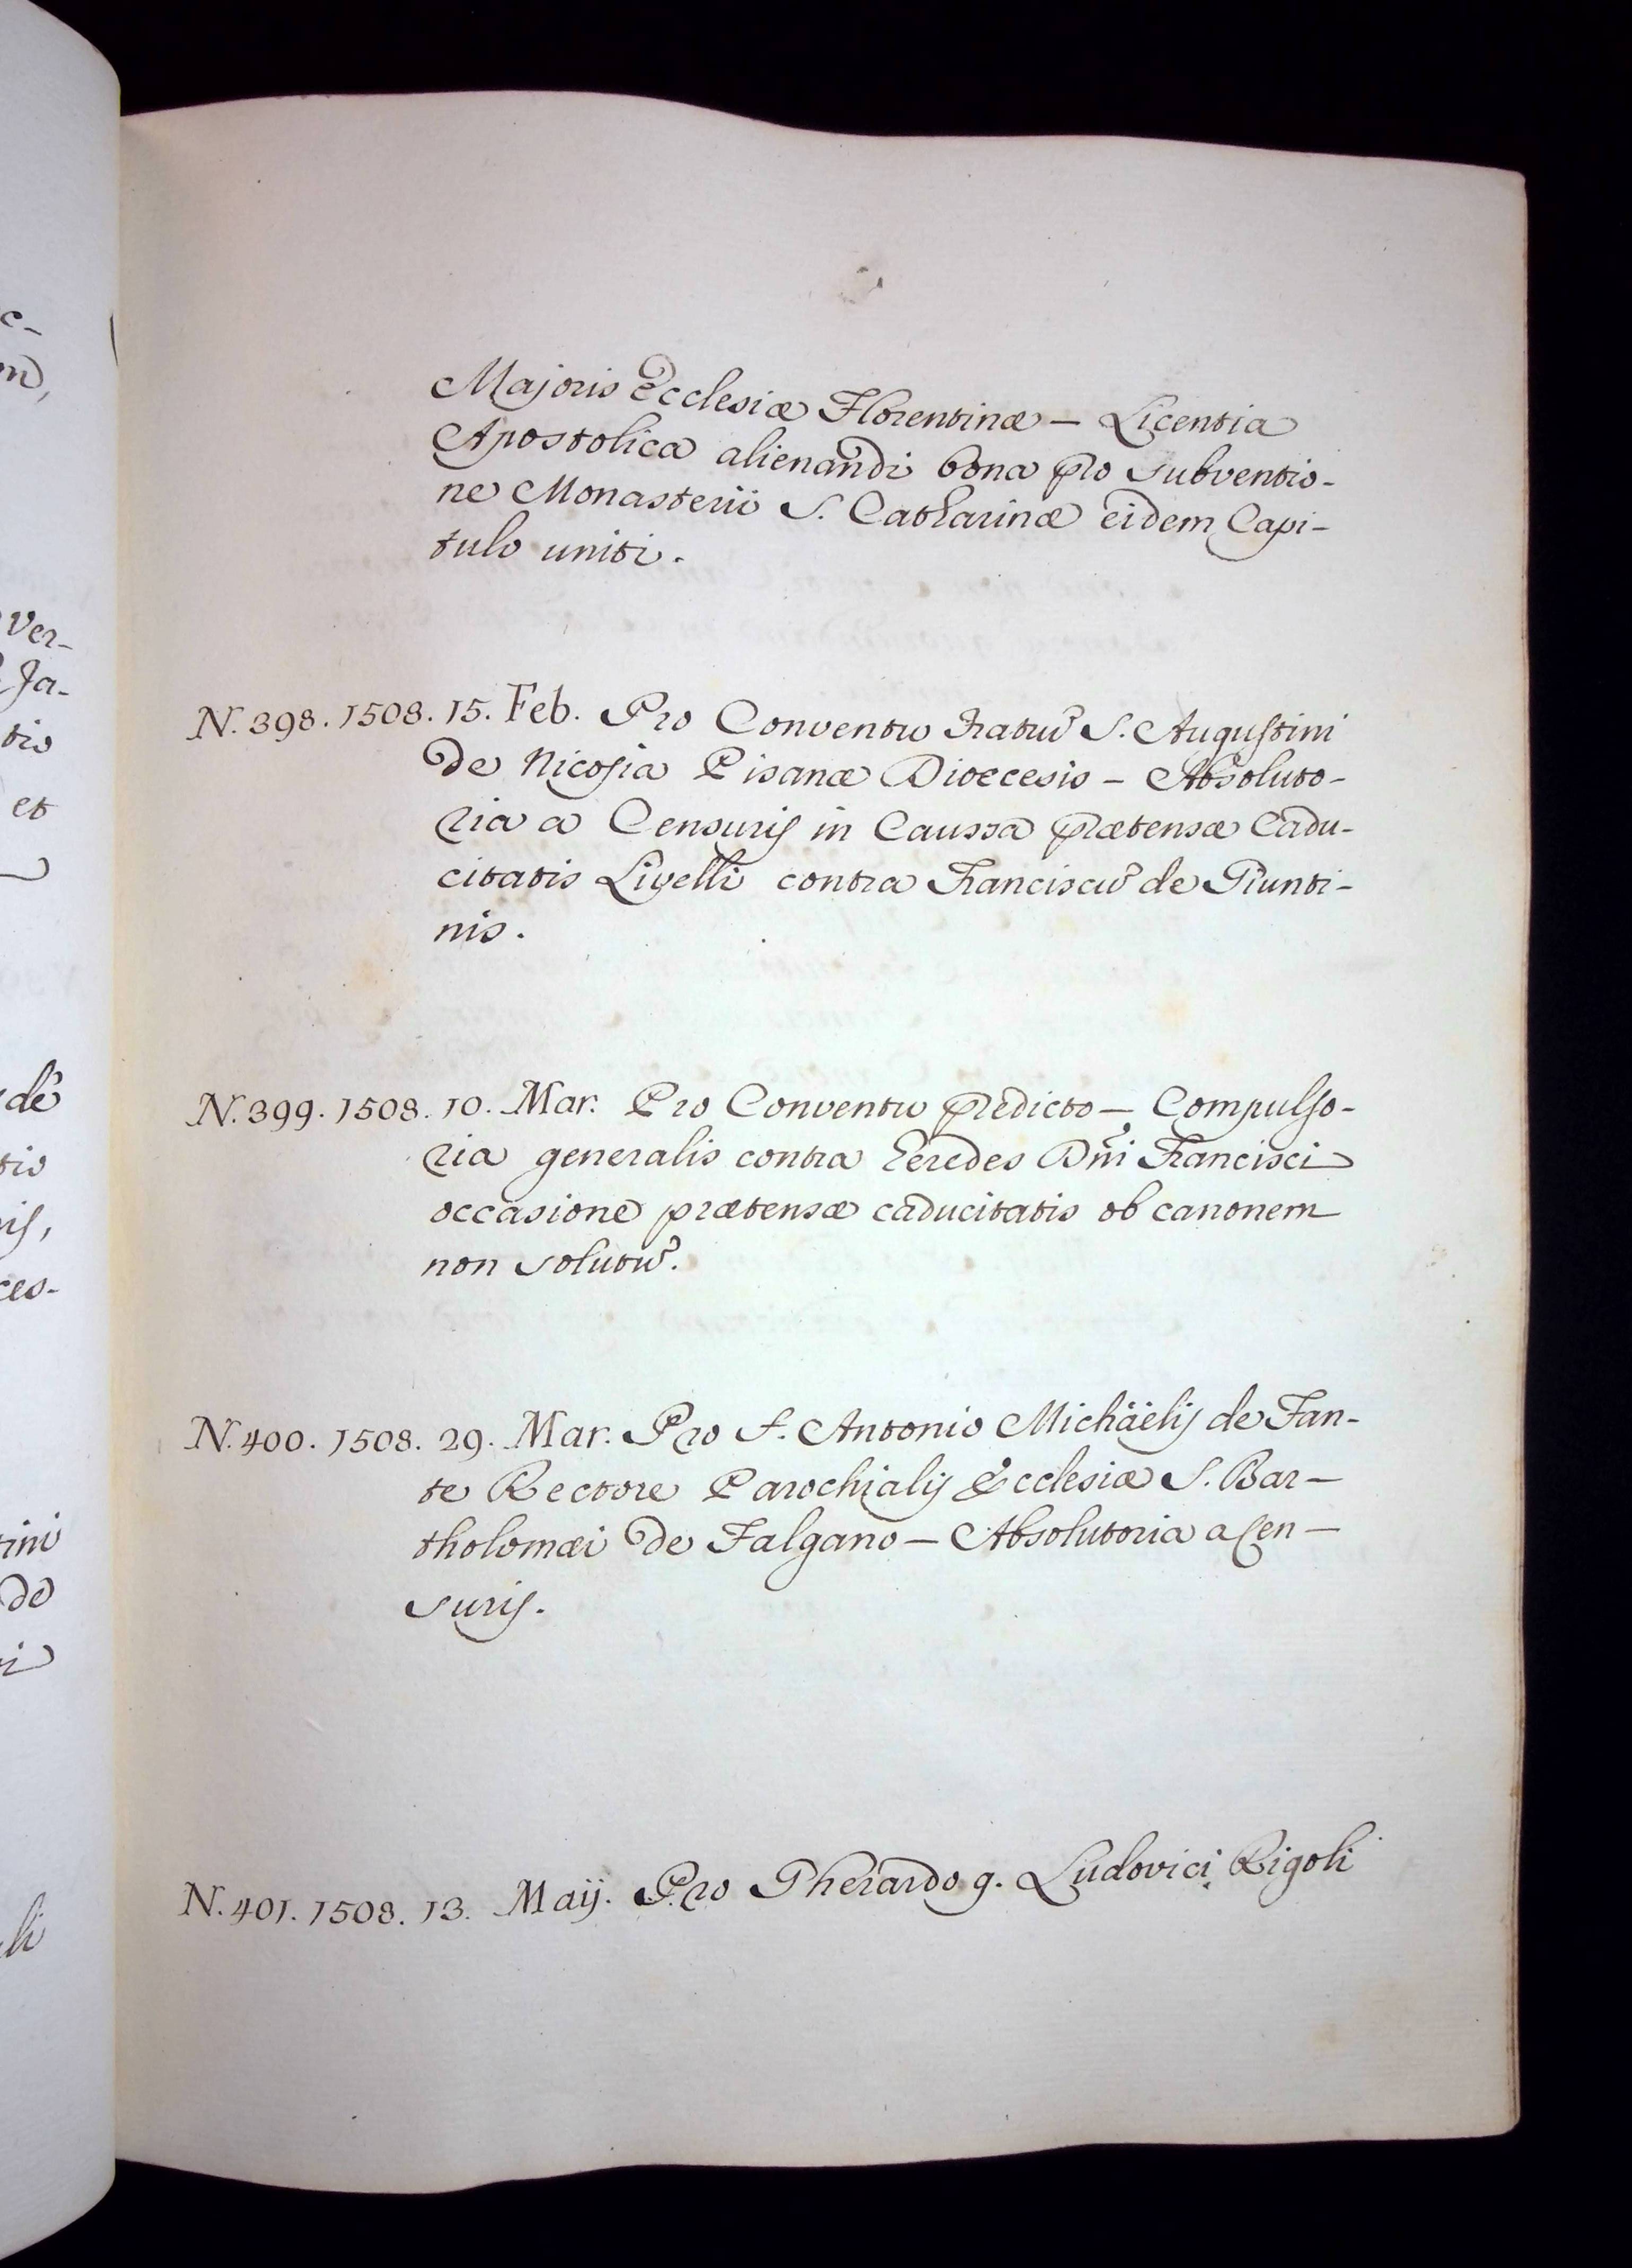 c-
m,
Ver-
Ja-
tio
et
dẽ
tio
nis,
ces-
tini
do
i
li
Majoris Ecclesiæ Florentinæ — Licentia
Apostolica alienandi bona pro subventio-
ne Monasterii S. Catharinæ eidem Capi-
tulo uniti.
N. 398. 1508. 15. Feb. Pro Conventu Fratrũ S. Augustini
de Nicosia Pisanæ Dioecesis — Absoluto-
ria a Censuris in Caussa prætensæ Cadu-
citatis Livelli contra Franciscũ de Giunti-
nis.
N. 399. 1508. 10. Mar. Pro Conventu predicto — Compulso-
ria generalis contra heredes Dñi Francisci
occasione prætensæ caducitatis ob canonem
non solutũ.
N. 400. 1508. 29. Mar. Pro F. Antonio Michäelis de Fan-
te Rectore Parochialis Ecclesiæ S. Bar-
tholomæi de Falgano — Absolutoria a Cen-
suris.
N. 401. 1508. 13. Maij. Pro Gherardo q. Ludovici Rigoli